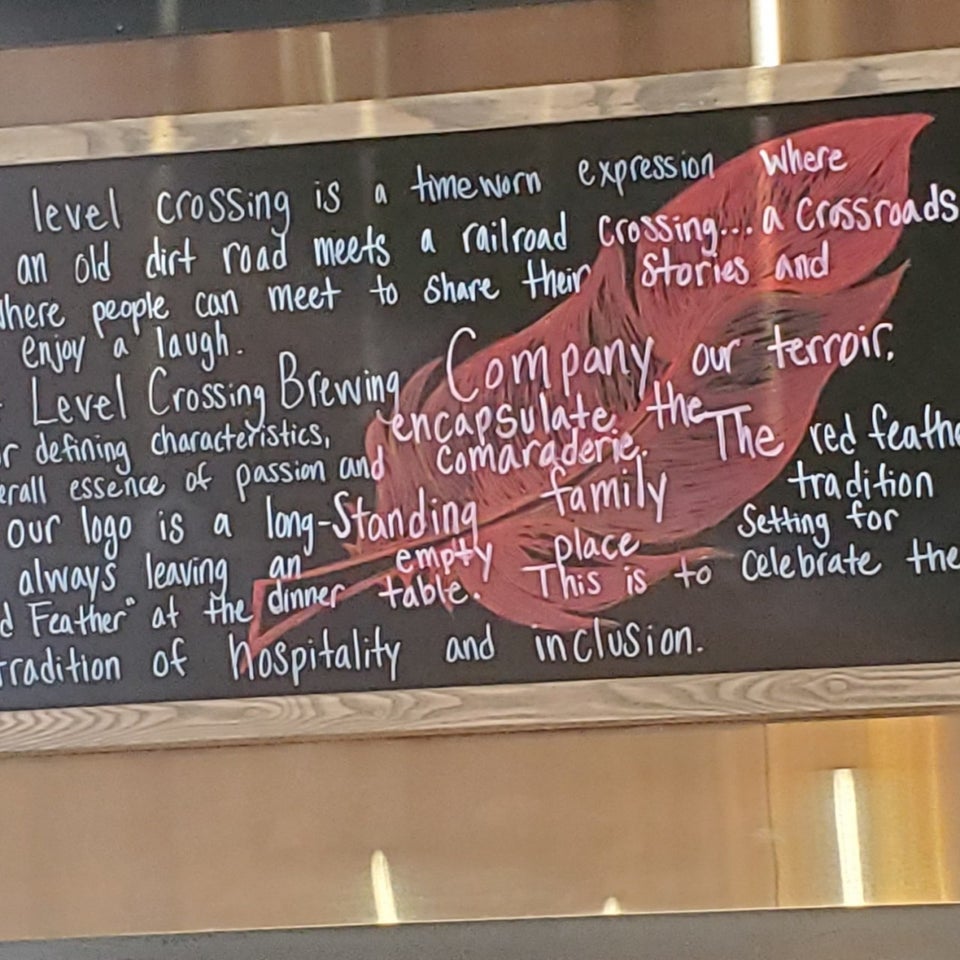 level crossing is a timeworn expression where
an old dirt road meets a railroad crossing... a crossroads
where people can meet to share their stories and
enjoy a laugh.
Level Crossing Brewing Company, our terroir,
defining characteristics, encapsulate the
essence of passion and comaraderie. The red
our logo is a long-standing family tradition
always leaving an empty place setting for
Feather" at the dinner table. This is to celebrate the
tradition of hospitality and inclusion.